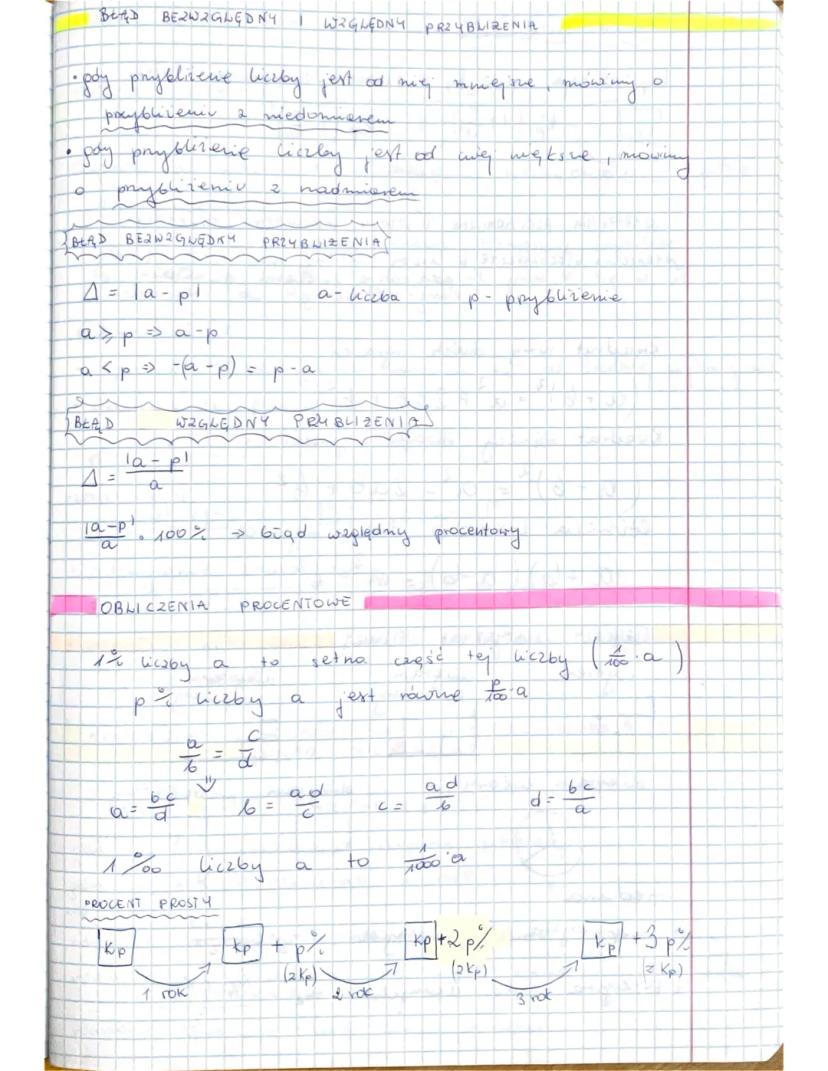 BŁĄD BEZWZGLĘDNY I WZGLĘDNY PRZYBLIŻENIA
• gdy przybliżenie liczby jest od niej mniejsze, mówimy o
przybliżeniu z niedomiarem
• gdy przybliżenie liczby jest od niej większe, mówimy
o przybliżeniu z nadmiarem
BŁĄD BEZWZGLĘDNY PRZYBLIŻENIA
Δ = |a - p|    a - liczba    p - przybliżenie
a ⩾ p => a - p
a < p => -(a - p) = p - a
BŁĄD WZGLĘDNY PRZYBLIŻENIA
Δ = |a - p| / a
|a-p| / a · 100% → błąd względny procentowy
OBLICZENIA PROCENTOWE
1% liczby a to setna część tej liczby (1/100 · a)
p% liczby a jest równe p/100 · a
a/b = c/d
⇓
a = bc/d    b = ad/c    c = ad/b    d = bc/a
1‰ liczby a to 1/1000 · a
PROCENT PROSTY
Kp    Kp + p%    Kp + 2p%    Kp + 3p%
(z Kp)    (z Kp)    (z Kp)
1 rok    2 rok    3 rok